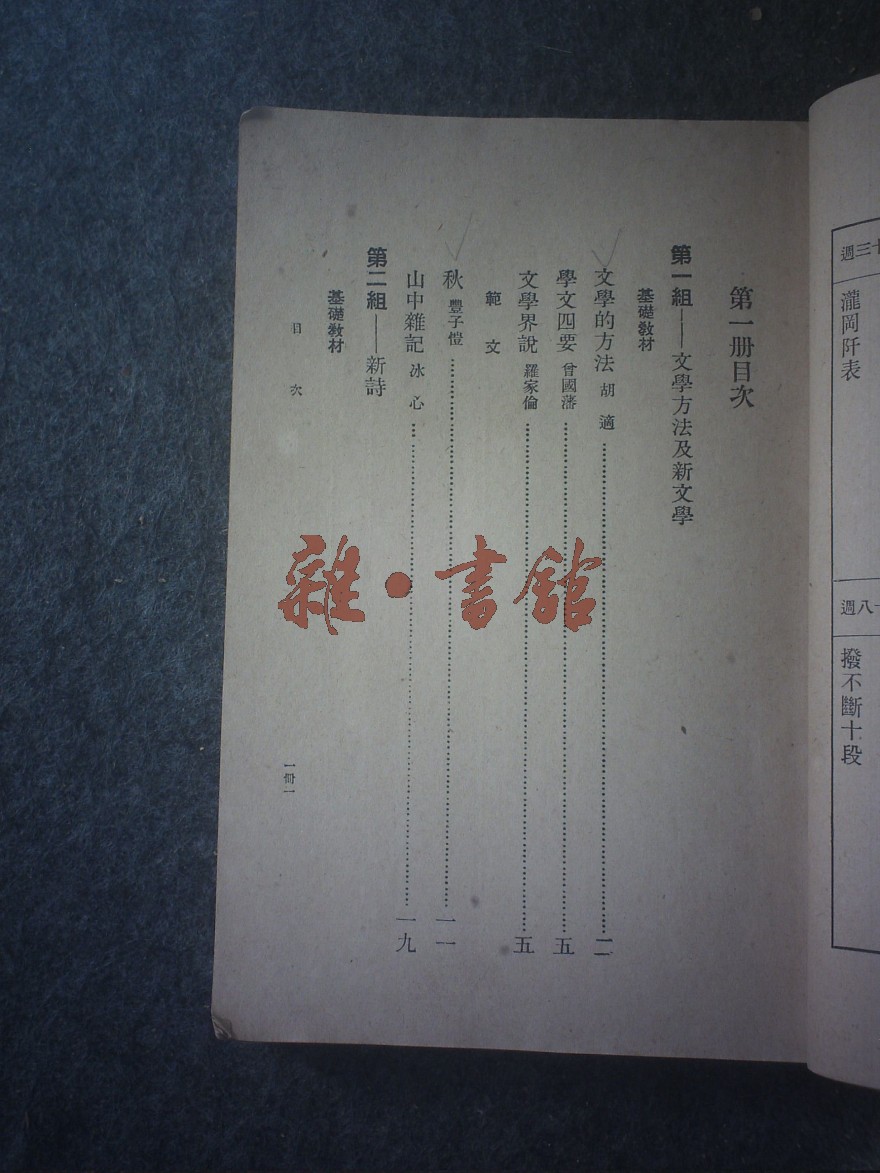 週三十
瀧岡阡表
週八十
撥不斷十段
第一册目次
第一組——文學方法及新文學
基礎教材
文學的方法 胡適……二
學文四要 曾國藩……五
文學界說 羅家倫……五
範文
秋 豐子愷……一一
山中雜記 冰心……一九
第二組——新詩
基礎教材
目次
一冊一
雜·書館